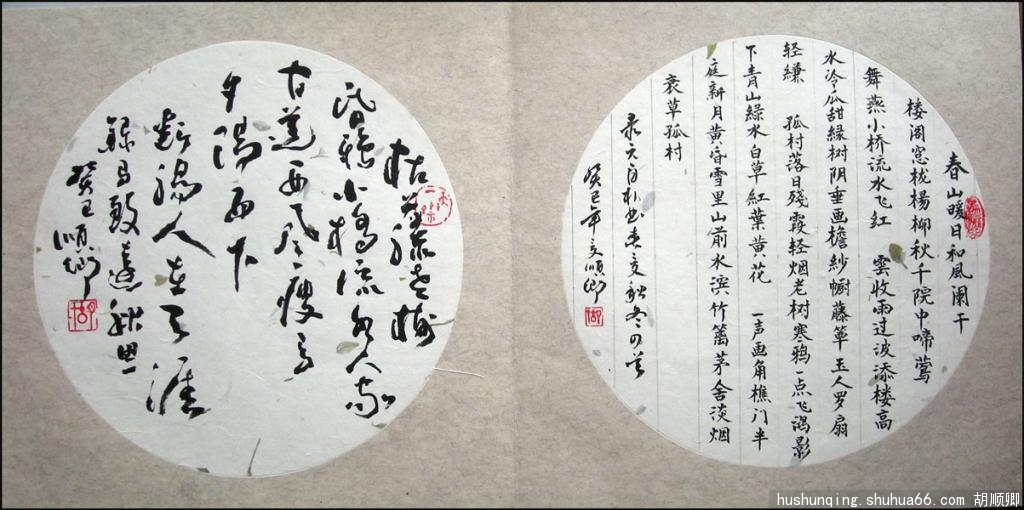 春山暖日和風阑干
楼阁窓栊楊柳秋千院中啼莺
舞燕小桥流水飞红 雲收雨过波添楼高
水冷瓜甜緑树阴垂画檐紗幮藤簟玉人罗扇
轻縑 孤村落日殘霞轻烟老树寒鸦一点飞鸿影
下青山綠水白草紅葉黄花 一声画角樵门半
庭新月黄昏雪里山前水滨竹篱茅舍淡烟
衰草孤村
录元白朴曲春夏秋冬四首
癸巳年夏順卿
枯藤老樹
昏鴉小橋流水人家
古道西风瘦马
夕陽西下
断腸人在天涯
錄马致遠秋思
癸巳順卿
hushunqing.shuhua66.com 胡顺卿